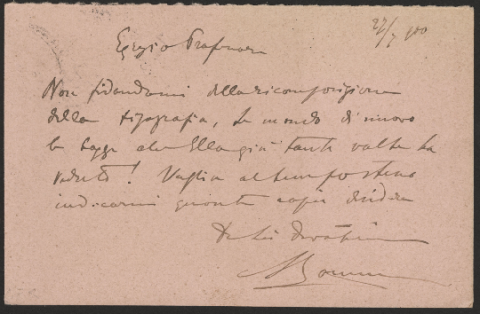 27/7 900
Egregio Professore
Non fidandomi della ricomposizione
della tipografia, Le mando di nuovo
le bozze che Ella già tante volte ha
veduto! Voglia al tempo stesso
indicarmi quante copie desidera
Di Lei Devotissimo